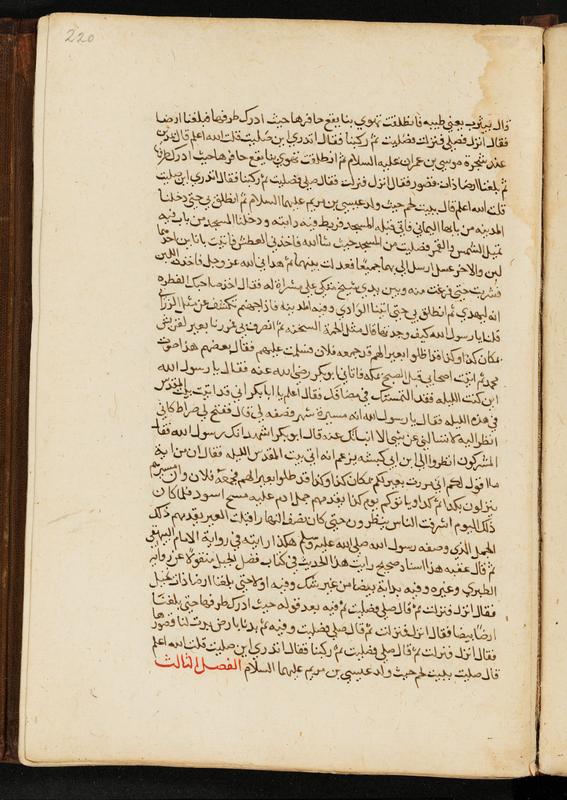 220
قال بيثرب يعني طيبه فانطلقت تهوي بنا يقع حافرها حيث ادرك طرفها فبلغنا ارضا
فقال انزل فصلي فنزلت فصليت ثم ركبنا فقال اتدري اين صليت قلت الله اعلم قال
عند شجرة موسى بن عمران عليه السلام ثم انطلقت تهوي بنا يقع حافرها حيث ادرك طرفها
ثم بلغنا ارضا ذات قصور فقال انزل فنزلت فقال صلي فصليت ثم ركبنا فقال اتدري اين صليت
قلت الله اعلم قال بيت لحم حيث ولد عيسى بن مريم عليهما السلام ثم انطلق بي حتى دخلنا
المدينه من بابها اليماني فاتى قبله المسجد فربط فيه دابته ودخلنا المسجد من باب فيه
تميل الشمس والقمر فصليت من المسجد حيث شا الله فاخذني العطش فاتيت بانا ين احدهما
لبن والاخر عسل ارسل الي بهما جميعا فعدلت بينهما ثم هداني الله عز وجل فاخذت اللبن
فشربت حتى فرغت منه وبين يدي شيخ متكي على له فقال اخذ صاحبك الفطره
انه ليهدي ثم انطلق بي حتى اتينا الوادي وفيه المدينه فاذا جهنم تكشف عن مثل الزرابي
قلنا يا رسول الله كيف وجدتها قال مثل الحمة السخنه ثم انصرف بي فمررنا بعير لقريش
بمكان كذا وكذا قد اظلوا بعيرا لهم قد جمعه فلان فسلمت عليهم فقال بعضهم هذا صوت
محمد ثم اتيت اصحابي قبل الصبح بمكه فاتاني ابو بكر رضي الله عنه فقال يا رسول الله
اين كنت الليله فقد التمستك في مضانك فقال اعلم يا ابا بكر اني قد اتيت بيت المقدس
في هذه الليله فقال يا رسول الله انه مسيرة شهر فصفه لي قال ففتح لي صراط كاني
انظر اليه لا تسالني عن شي الا انبأتك عنه قال ابو بكر اشهد انك رسول الله فقال
المشركون انظروا الى ابن ابي كبشه يزعم انه اتى بيت المقدس الليله فقال ان من اية
ما اقول لكم اني مررت بعير لكم بمكان كذا وكذا قد ظلوا بعيرا لهم فجمعه فلان وان مسيرهم
ينزلون بكذا ثم كذا وياتوكم يوم كذا يقدمهم جمل ادم عليه مسح اسود فلما كان
ذلك اليوم اشرفت الناس ينظرون حتى كان نصف النهار اقبلت العير يقدمهم ذلك
الجمل الذي وصفه رسول الله صلى الله عليه وسلم هكذا رايته في رواية الامام البيهقي
ثم قال عقبه هذا اسناد صحيح رايت هذا الحديث في كتاب فضل الخيل منقولا عن رواية
الطبري وغيره وفيه بدابة بيضا من غير شك وفيه اولا حتى بلغنا ارضا ذات نخيل
فقال انزل فنزلت ثم قال صلي فصليت ثم فيه بعد قوله حيث ادرك طرفها حتى بلغنا
ارضا بيضا فقال انزل فنزلت ثم قال صلي فصليت وفيه ثم بدانا بارض بدت لنا قصورها
فقال انزل فنزلت ثم قال صلي فصليت ثم ركبنا فقال اتدري اين صليت قلت الله اعلم
قال صليت ببيت لحم حيث ولد عيسى بن مريم عليهما السلام الفصل الثالث